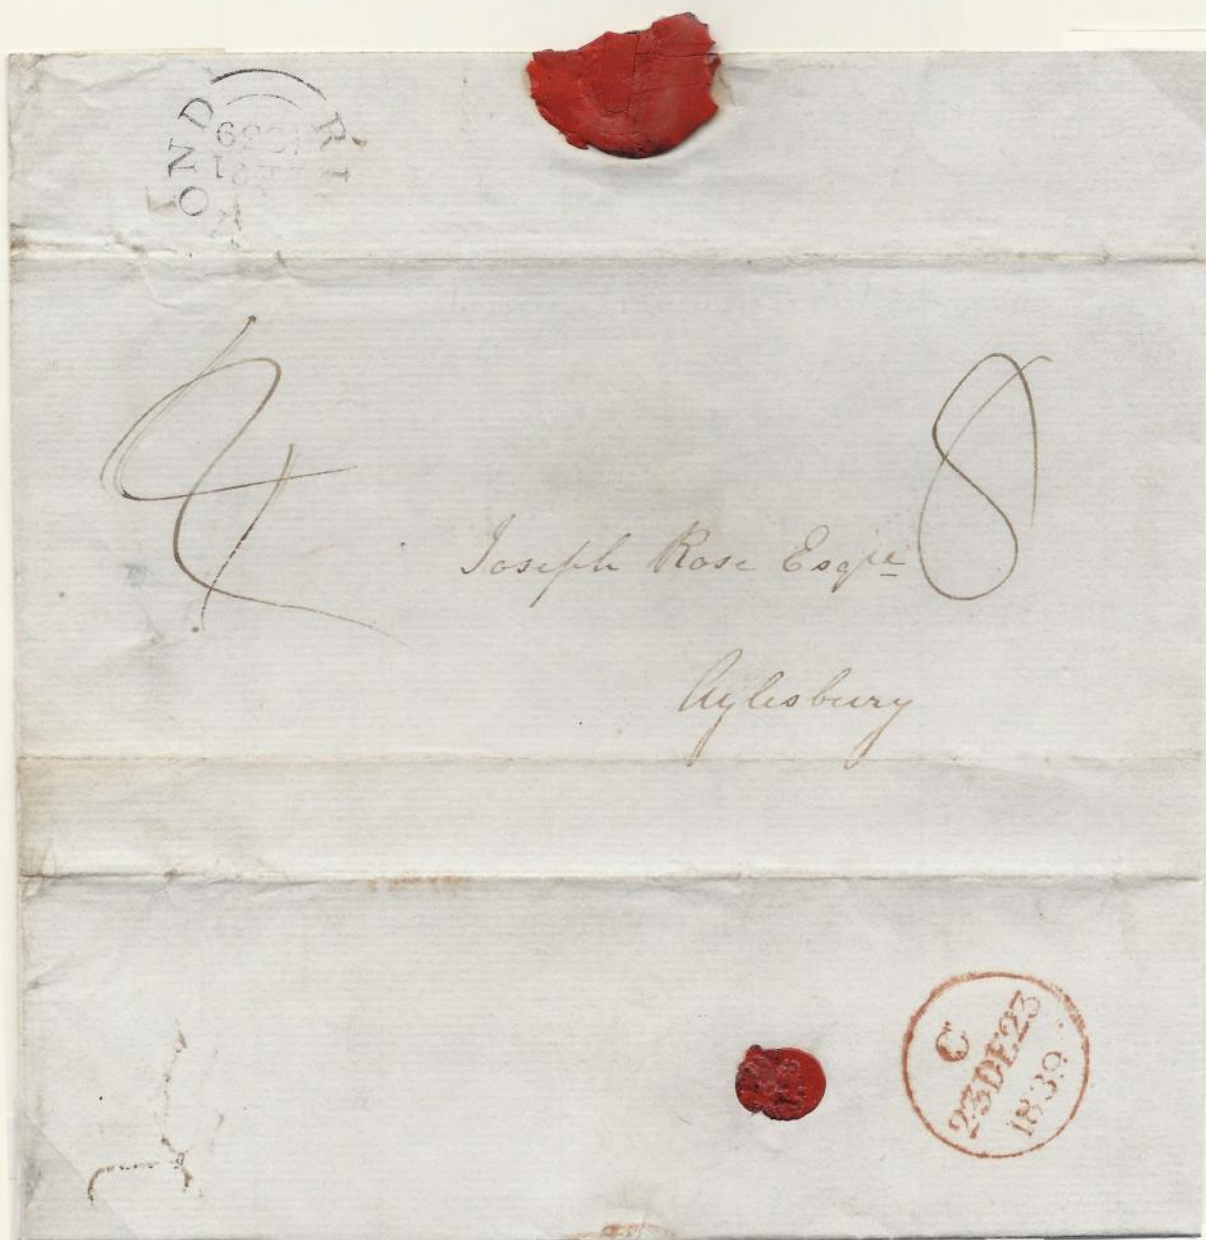 1839
4 8
Joseph Rose Esqre
Aylesbury
C
23DE23
1839